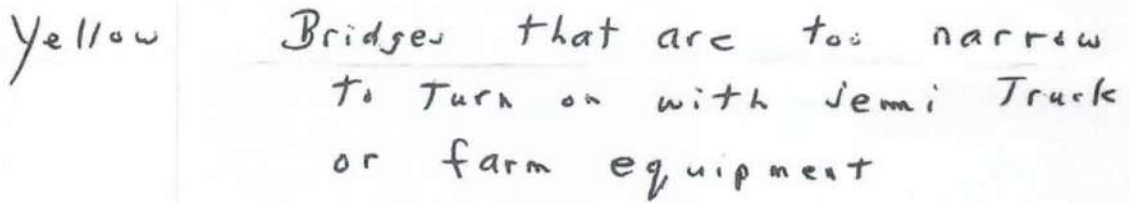 Yellow Bridges that are too narrow
to Turn on with semi Truck
or farm equipment